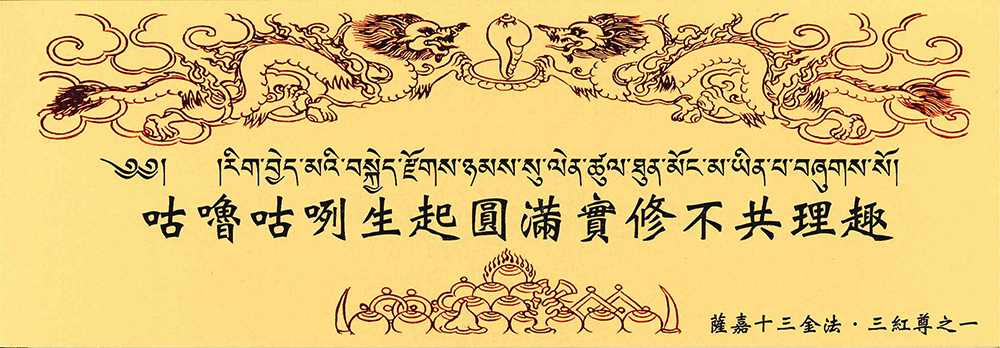 ༄༅། །རིག་བྱེད་མའི་བསྐྱེད་རྫོགས་ཉམས་སུ་ལེན་ཚུལ་ཐུན་མོང་མ་ཡིན་པ་བཞུགས་སོ།
咕嚕咕咧生起圓滿實修不共理趣
薩嘉十三金法·三紅尊之一